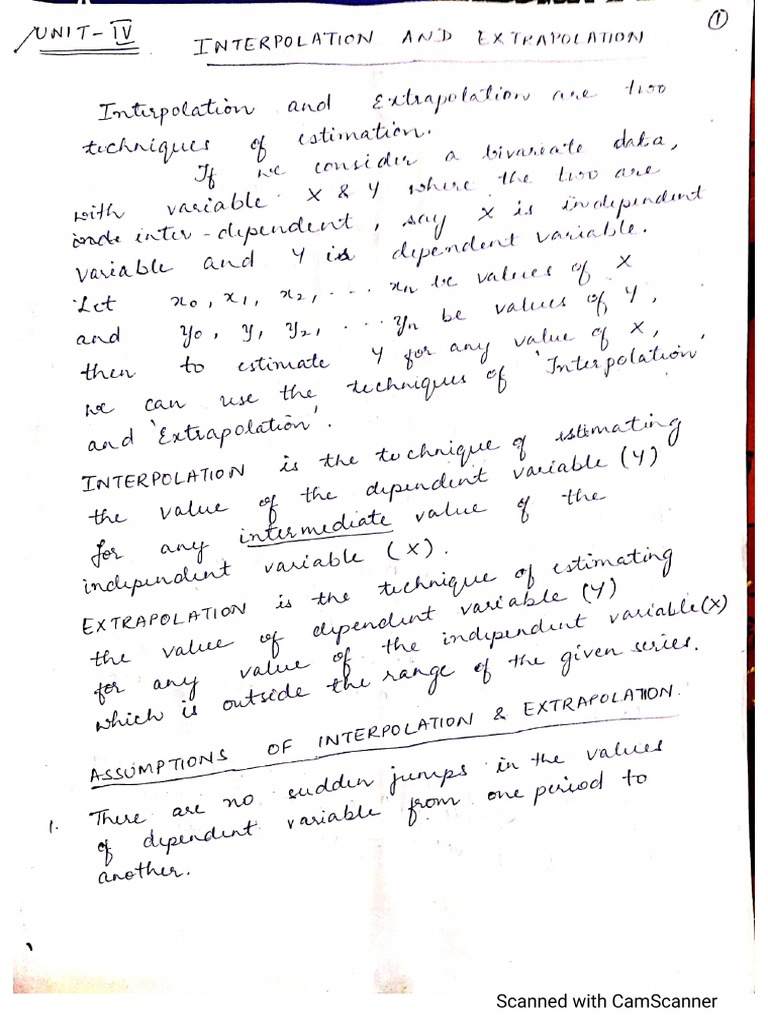 ①
UNIT-IV
INTERPOLATION AND EXTRAPOLATION
Interpolation and Extrapolation are two
techniques of estimation.
If we consider a bivariate data,
with variable X & Y where the two are
inter-dependent, say X is independent
variable and Y is dependent variable.
Let x₀, x₁, x₂, ... xₙ be values of X
and y₀, y₁, y₂, ... yₙ be values of Y,
then to estimate Y for any value of X,
we can use the techniques of 'Interpolation'
and 'Extrapolation'.
INTERPOLATION is the technique of estimating
the value of the dependent variable (Y)
for any intermediate value of the
independent variable (X).
EXTRAPOLATION is the technique of estimating
the value of dependent variable (Y)
for any value of the independent variable (X)
which is outside the range of the given series.
ASSUMPTIONS OF INTERPOLATION & EXTRAPOLATION.
1. There are no sudden jumps in the values
of dependent variable from one period to
another.
Scanned with CamScanner